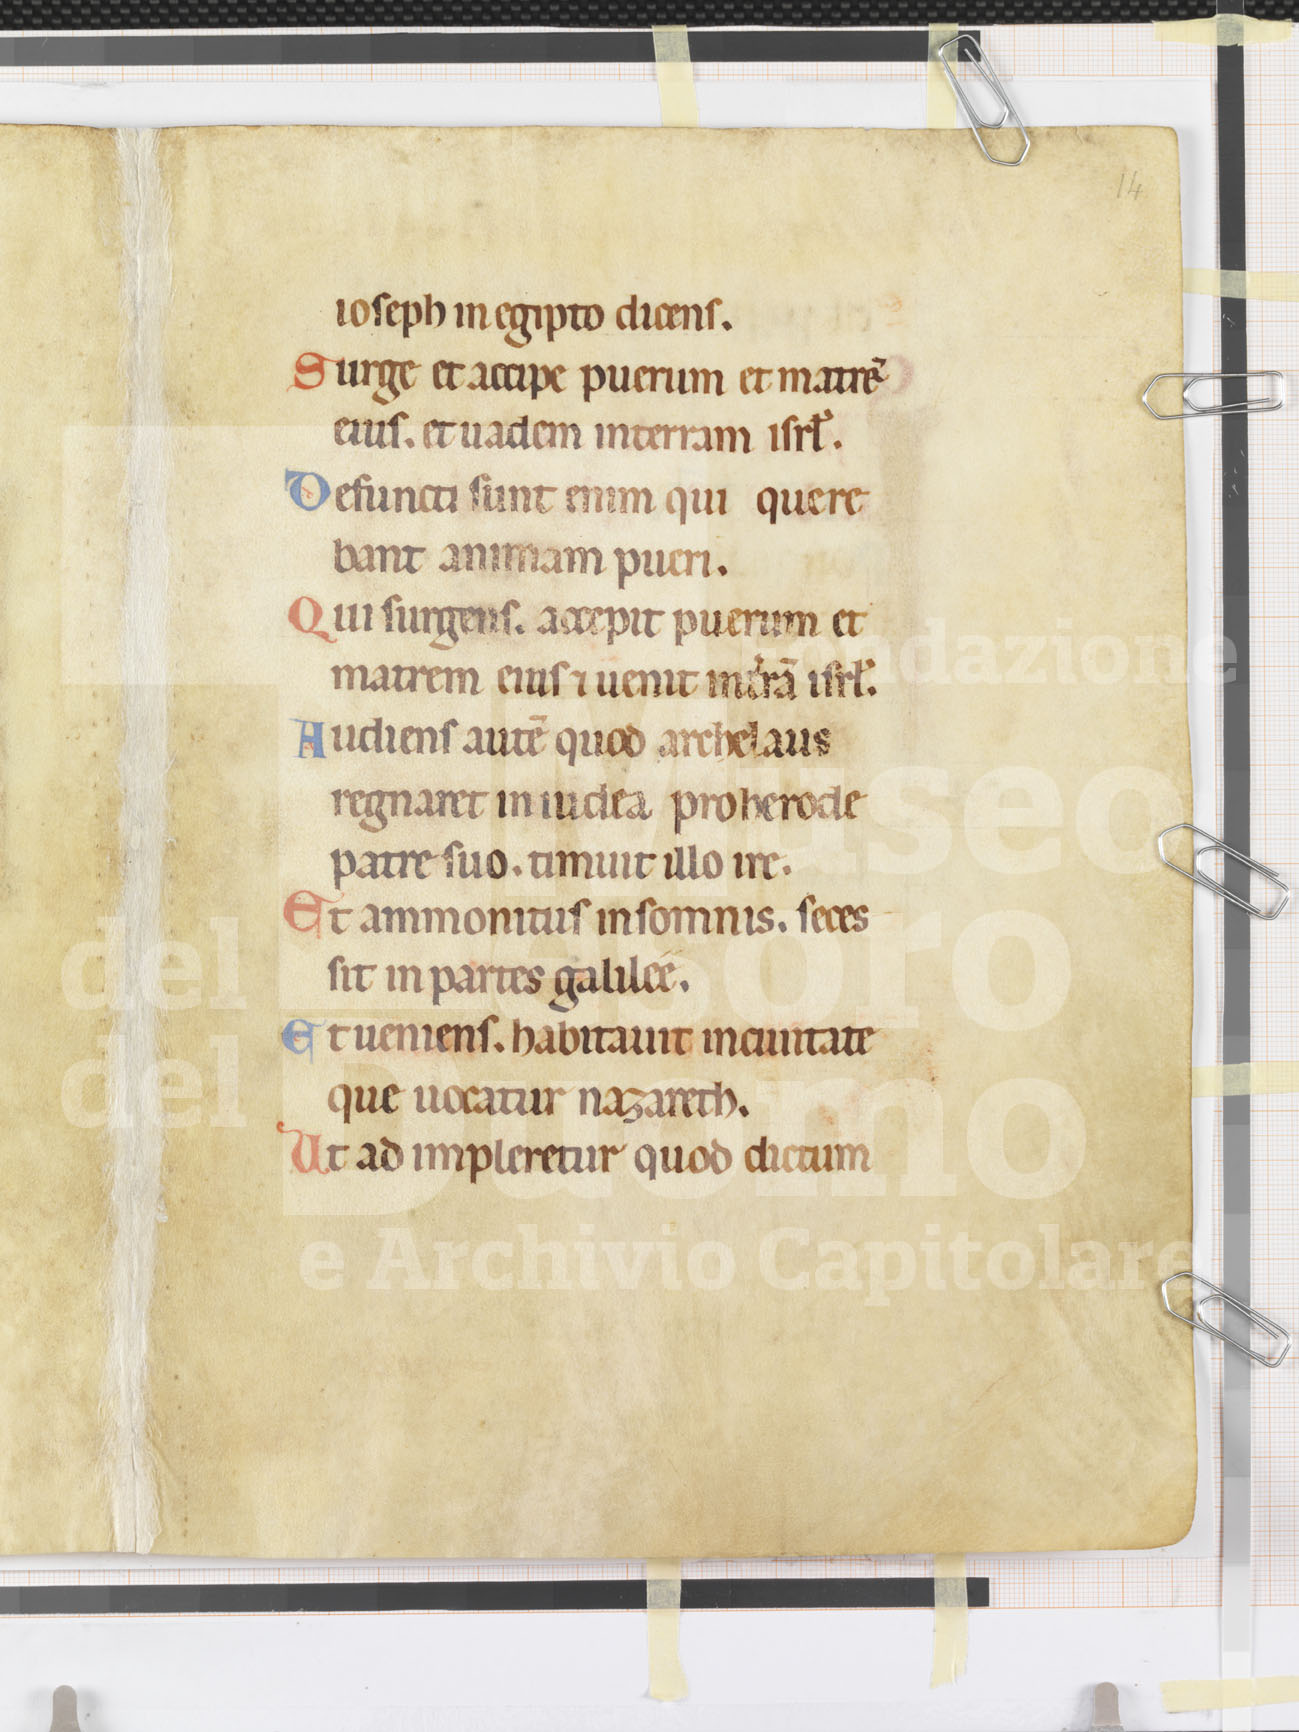 14
ioseph in egipto dicens.
Surge et accipe puerum et matrē
eius. et uade in terram isrl̓.
Defuncti sunt enim qui quere
bant animam pueri.
Qui surgens. accepit puerum et
matrem eius ⁊ uenit in t̓rā isrl̓.
Audiens autē quod archelaus
regnaret in iudea pro herode
patre suo. timuit illo ire.
Et ammonitus in somnis. seces
sit in partes galilee.
Et ueniens. habitauit in ciuitate
que uocatur nazareth.
Ut ad impleretur quod dictum
fondazione
Museo
del Tesoro
del Duomo
e Archivio Capitolare